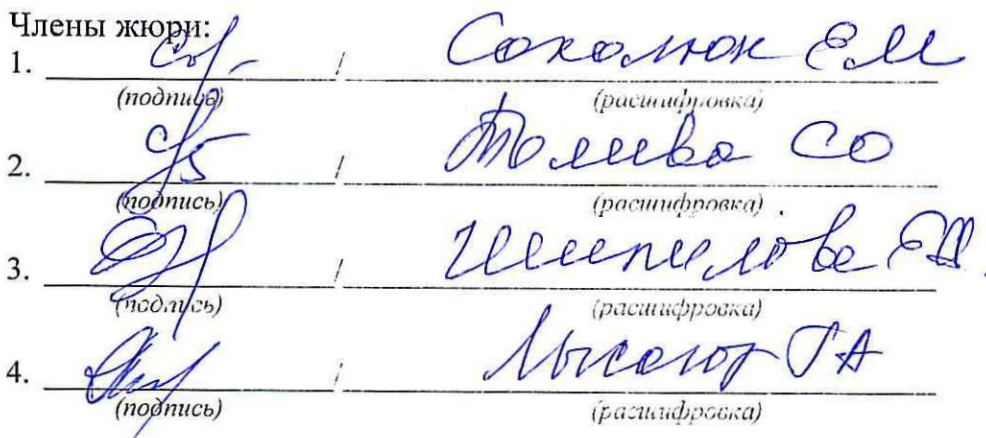 Члены жюри:
1. / Соколюк ЕМ
(подпись) (расшифровка)
2. / СО
(подпись) (расшифровка)
3. / Шипилова
(подпись) (расшифровка)
4. / ГА
(подпись) (расшифровка)